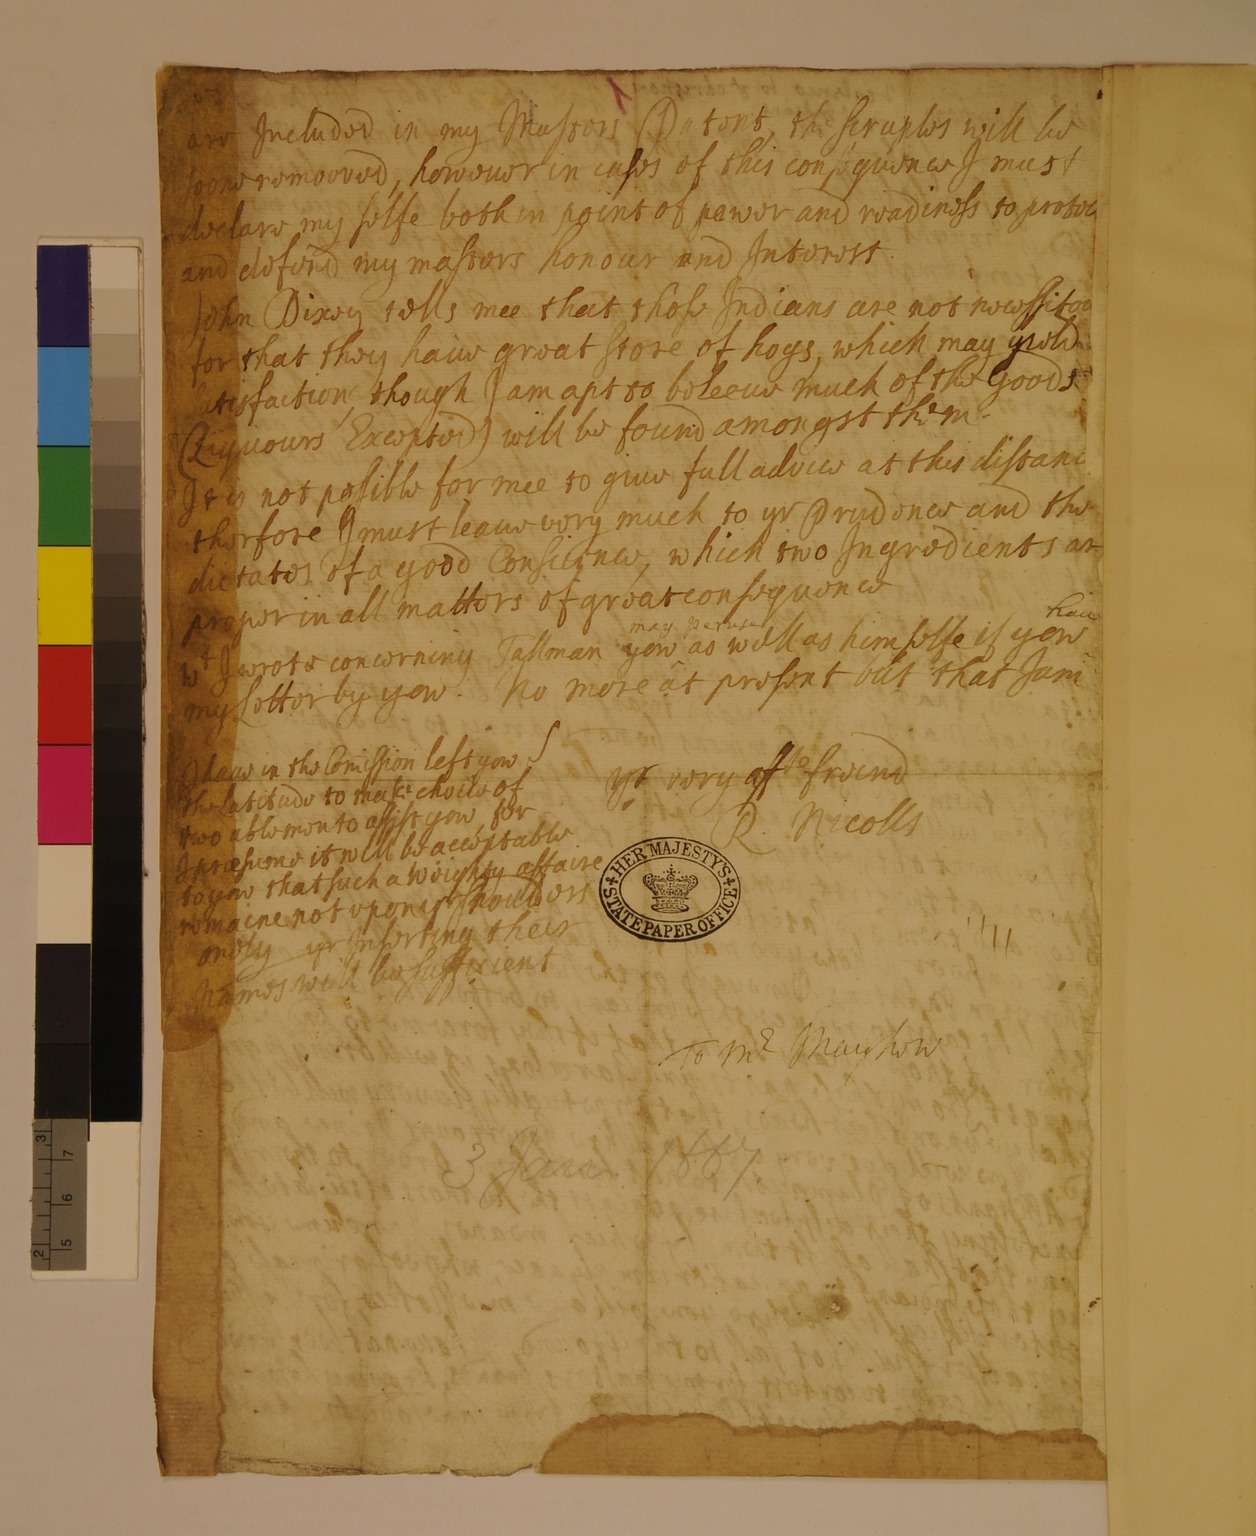 are Included in my Masters Patent, the scruples will be
soone remooved, however in cases of this consequence I must
declare my selfe both in point of power and readiness to protec
and defend my masters honour and Interest.
John Dixey tells mee that those Indians are not necessitoo
for that they haue great store of hogs, which may yeeld
satisfaction, though I am apt to beleeue much of the goods
(Liquours Excepted) will be found amongst them.
It is not possible for mee to giue full aduice at this distanc
therfore I must leaue very much to yr Prudence and the
dictates of a good Conscience, which two Ingredients ar
proper in all matters of great consequence
may peruse haue
wt I wrote concerning Tallman yow as well as himselfe if yow
my Letter by yow. No more at present but that I am
I haue in the Comission left yow
the latitude to make choice of
two able men to assist yow, for
I præsume it will be acceptable
to yow that such a weighty affaire
remaine not upon yr shoulders
onely yr Inserting their
names will be sufficient
yr very affte freind
R. Nicolls
HER MAJESTY'S
STATE PAPER OFFICE
To Mr Mayhew
3 Jan. 1667
3 7
6
2 5